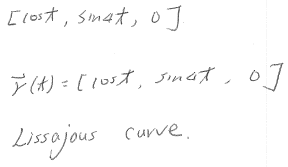 [cost, sin4t, 0]
r⃗(t) = [cost, sin4t, 0]
Lissajous curve.